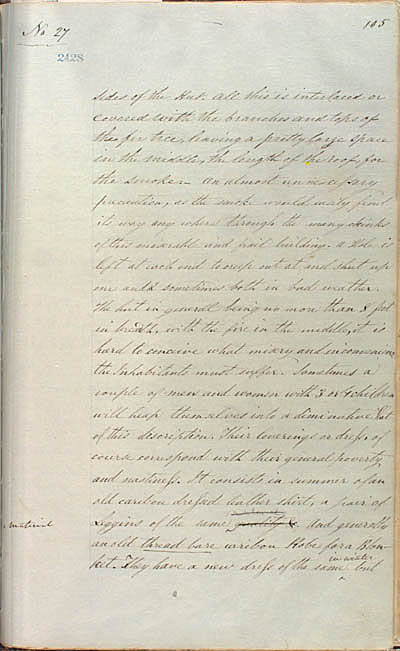 No. 27
105
2428
sides of the Hut. all this is interlaced or
covered with the branches and tops of
the fir tree, leaving a pretty large space
in the middle, the length of the roof, for
the smoke - an almost unnecessary
precaution, as the smoke would easily find
its way any where through the many chinks
of this miserable and frail building. a Hole is
left at each end to creep out at, and shut up
one and sometimes both in bad weather.
The hut in general being no more than 8 feet
in breadth, with the fire in the middle, it is
hard to conceive what misery and inconvenience
the Inhabitants must suffer. Sometimes a
couple of men and women with 3 or 4 children
will heap themselves into a diminutive Hut
of this description. Their coverings or dress, of
course correspond with their general poverty
and nastiness. It consists in summer of an
old caribou dressed leather shirt, a pair of
Leggins of the same quality & And generally
material
an old thread bare caribou Robe for a Blan-
ket. They have a new dress of the same in winter but